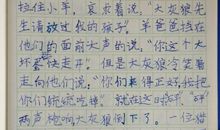 拉住小羊，哀求着说："大灰狼先
生请放过我的孩子"。羊爸爸挡在
他们的面前大声的说，"你这个大
坏蛋快走开"但是大灰狼冷笑着
走向他们说："你们来得正好，我把
你们统统吃掉"就在这时
两声枪响大灰狼倒下了。一位猎